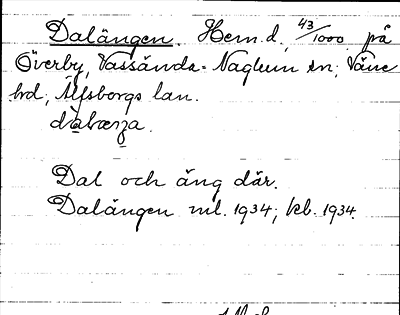 Dalängen. Hem.d. 43/1000 på
Överby, Vassända-Naglum sn; Väne
hd, Älfsborgs län.
Dal och äng där.
Dalängen ml. 1934; kb. 1934.